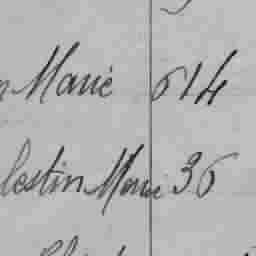 Marie 614
lestin Marie 36